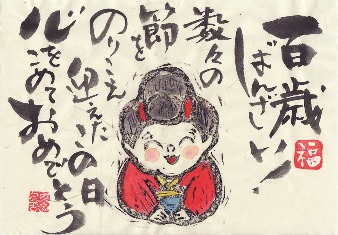 百歳
ばんざい!
福
数々の
節を
のりこえ
迎えたこの日
心をこめておめでとう